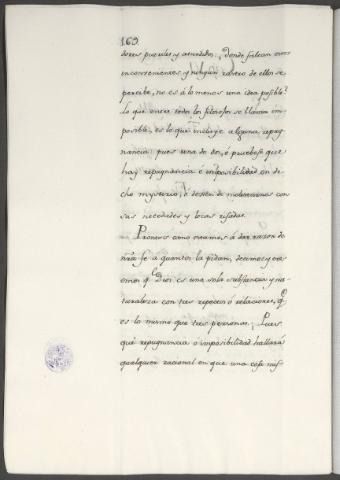 169.
dores pueriles y aturdidos: donde faltan estos
inconvenientes y ningun rastro de ellos se
percibe, no es á lo menos una idea posible?
Lo que entre todos los filosofos se llama im-
posible, es lo que incluye alguna repug-
nancia: pues una de dos, ó pruebese que
hay repugnancia é imposibilidad en di-
cho mysterio, ó dexen de molestarnos con
sus necedades y locas risadas.
Prontos como estamos á dar razon de
nr̃a fe á quantos la pidan, decimos y cre-
emos q.e Dios es una sola substancia y na-
turaleza con tres respetos ó relaciones, q.e
es lo mismo que tres personas. Pues
qué repugnancia ó imposibilidad hallará
qualquier racional en que una cosa mis-